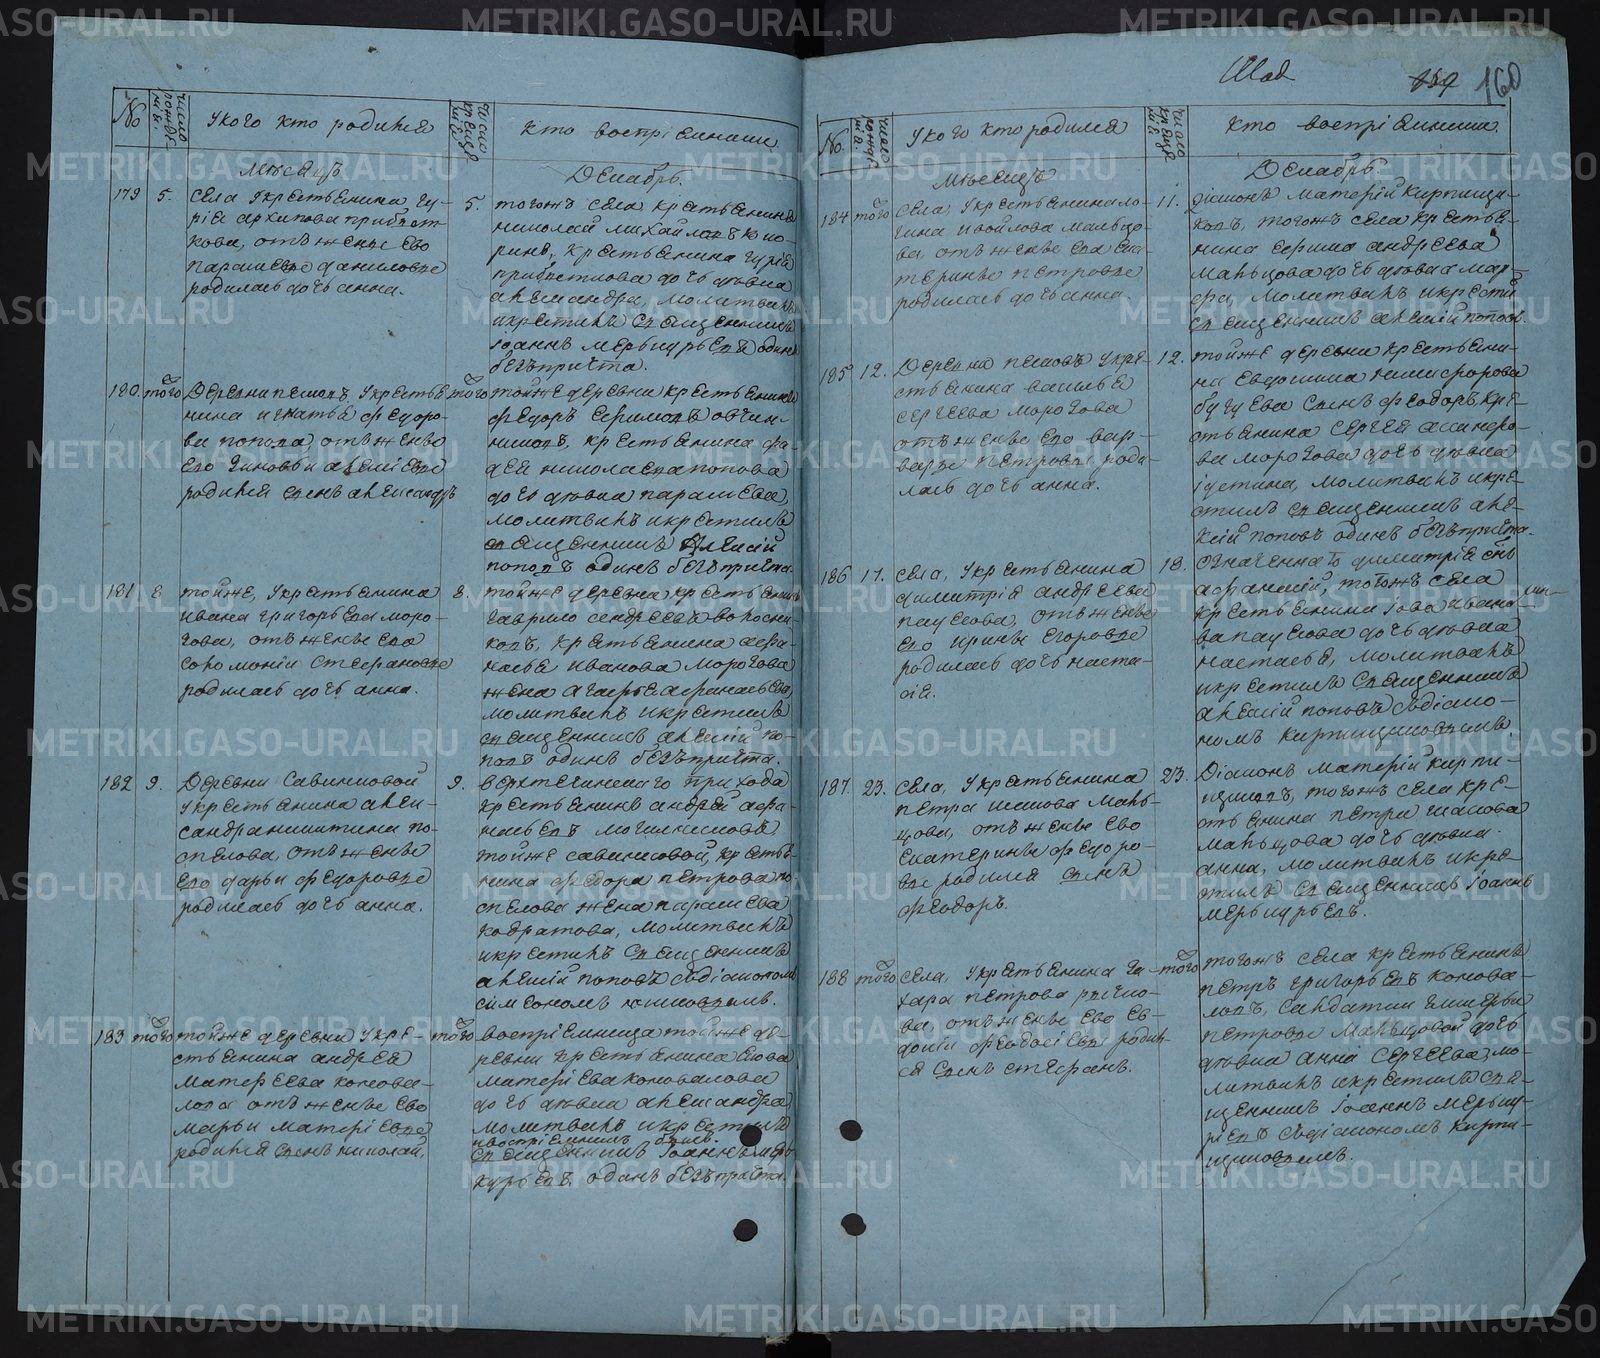 Шад
159 160
№
число рожде нія.
У кого кто родился
число креще нія
Кто воспріемники
Мѣсяцъ
Декабрь.
179 5.
Села, У крестьянина Гу-
рія Архипова Прибыт-
кова, отъ жены его
Параскевы Даниловы
родилась дочь Анна.
5.
тогожъ села крестьянинъ
Николай Михайловъ
крестьянина Гурія
Прибыткова дочь дѣвка
Александра, Молитвилъ
и крестилъ Священникъ
Іоаннъ Меркурьевъ одинъ
безъ причта.
180 того
Деревни Песковъ, У крестья-
нина Игнатья Федоро-
ва Попова, отъ жены
его Зиновьи Алексіевы
родился сынъ Александръ
того
тойже деревни крестьянинъ
Федоръ Ефимовъ Овчин-
никовъ, крестьянина Фа-
дея Николаева Попова
дочь дѣвка Параскева,
Молитвилъ и крестилъ
Священникъ Алексій
Поповъ одинъ безъ причта.
181 8
тойже, У крестьянина
Ивана Григорьева Моро-
зова, отъ жены его
Соломоніи Стефановы
родилась дочь Анна.
8.
тойже деревни крестьянинъ
Гаврило Андреевъ
крестьянина Афа-
насья Иванова Морозова
жена Агафья Афанасьева,
Молитвилъ и крестилъ
Священникъ Алексій По-
повъ одинъ безъ причта.
182 9.
Деревни Савинисковой
У крестьянина Алек-
сандра Никитина По-
спелова, отъ жены
его Дарьи Федоровы
родилась дочь Анна.
9.
Верхтеченскаго прихода
крестьянинъ Андрей Афа-
насьевъ Могильниковъ
тойже Савинисковой, крестья-
нина Федора Петрова По-
спелова жена Параскева
Кодратова, Молитвилъ
и крестилъ Священникъ
Алексій Поповъ съ діакономъ
183 того
тойже деревни У кре-
стьянина Андрея
Матфеева Конова-
лова отъ жены его
Марьи Матфіевы
родился сынъ Николай,
того
Воспріемница тойже де-
ревни крестьянина
Матфіева Коновалова
дочь дѣвка Александра
Молитвилъ и крестилъ
и воспріемникъ былъ.
Священникъ Іоаннъ Мер-
курьевъ одинъ безъ причта.
№.
число рожде нія.
У кого кто родился
число креще нія
Кто воспріемники
Мѣсяцъ
Декабрь
184 того
Села, У крестьянина Ло-
гина Мальцо-
ва отъ жены его Ека-
терины Петровы
родилась дочь Анна.
11.
Діаконъ Матфій Кирпищи-
ковъ, тогожъ села крестья-
нина Ефима Андреева
Мальцова дочь дѣвка Мар-
фа, Молитвилъ и крестилъ
Священникъ Алексій Поповъ.
185 12.
Деревни Песковъ У кре-
стьянина Василья
Сергеева Морозова
отъ жены его Вар-
вары Петровы роди-
лась дочь Анна.
12.
тойже деревни крестьяни-
на Евдокима Никифорова
Бугуева сынъ Феодоръ кре-
стьянина Сергея
Морозова дочь дѣвка
Іустина, Молитвилъ и кре-
стилъ Священникъ Але-
ксій Поповъ одинъ безъ причта.
186 17.
Села, У крестьянина
Димитрія Андреева
Паускова, отъ жены
его Ирины Егоровы
родилась дочь Наста-
сія.
18.
Означеннаго Димитрія сынъ
Афанасій, тогожъ села
крестьянина Іова Ивано-
ва Паускова дочь дѣвка
Настасья, Молитвилъ
и крестилъ Священникъ
Алексій Поповъ съ діако-
номъ Кирпищиковымъ.
187 23.
Села, У крестьянина
Петра Исакова Маль-
цова, отъ жены его
Екатерины Федоро-
вы родился сынъ
Феодоръ.
23.
Діаконъ Матфій Кирпи-
щиковъ, тогожъ села кре-
стьянина Петра Исакова
Мальцова дочь дѣвка
Анна, Молитвилъ и кре-
стилъ Священникъ Іоаннъ
Меркурьевъ.
188 того
Села, У крестьянина За-
хара Петрова Рычко-
ва, отъ жены его Ев-
докіи Феодосіевы родил-
ся сынъ Стефанъ.
того
тогожъ села крестьянинъ
Петръ Григорьевъ Конова-
ловъ, Салдатки Гликерьи
Петровы Мальцовой дочь
дѣвка Анна Сергеева, мо-
литвилъ и крестилъ Свя-
щенникъ Іоаннъ Мерку-
ріевъ съ діакономъ Кирпи-
щиковымъ.